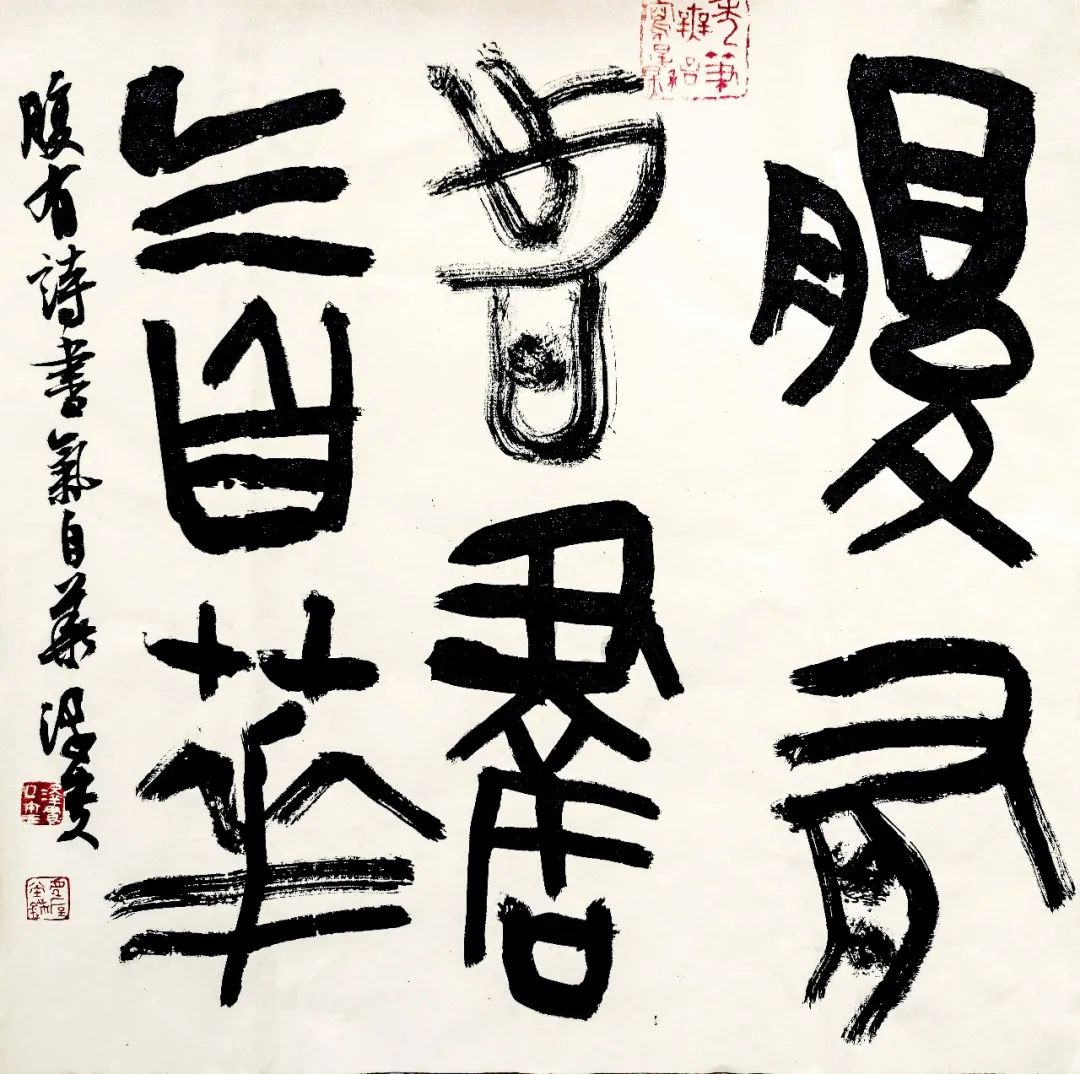 腹有
詩書
气自華
腹有詩書氣自華